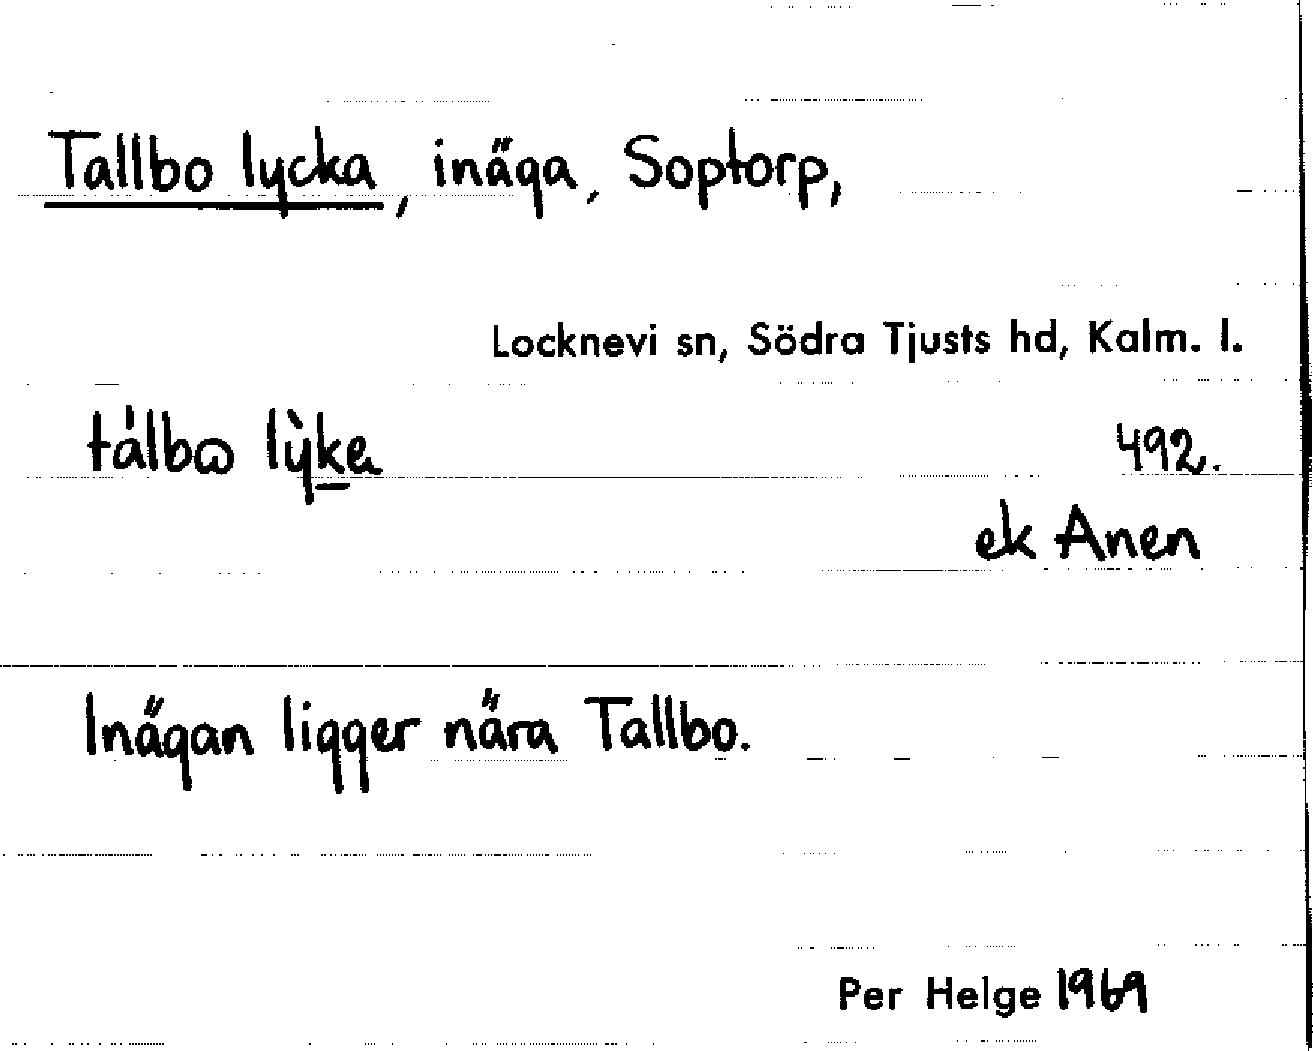 Tallbo lycka, inäga, Soptorp,
Locknevi sn, Södra Tjusts hd, Kalm. l.
tálbɷ lỳka 492.
ek Anen
Inägan ligger nära Tallbo.
Per Helge 1969